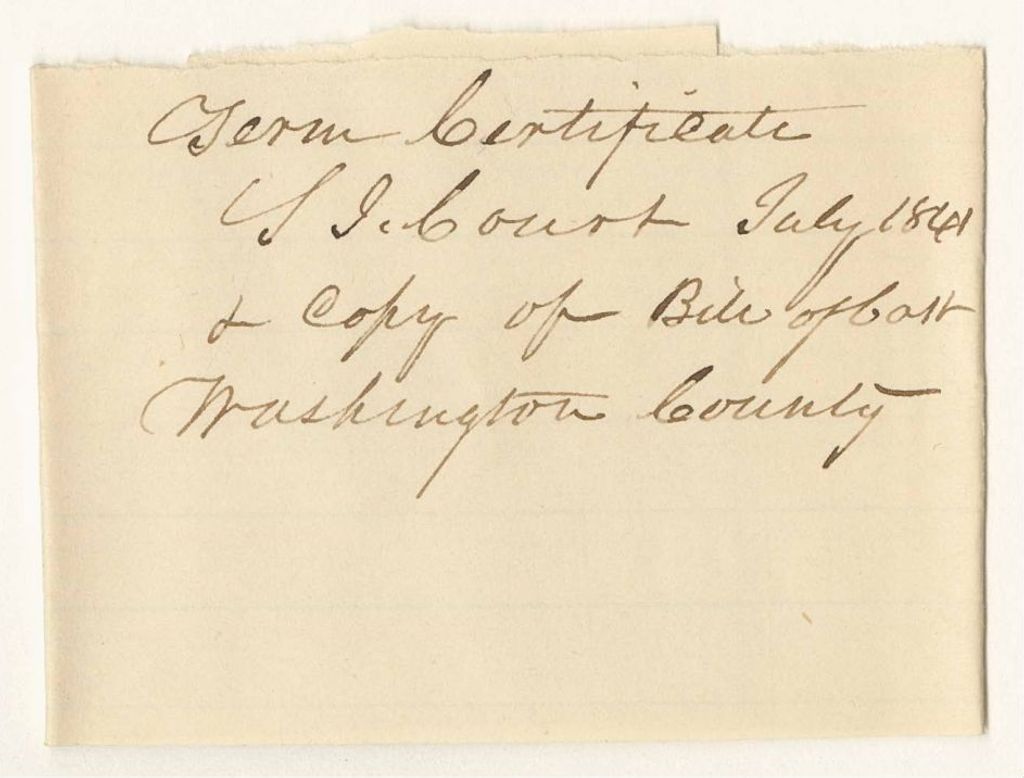 Term Certificate
S J. Court July 1841
& Copy of Bill of Cost
Washington County